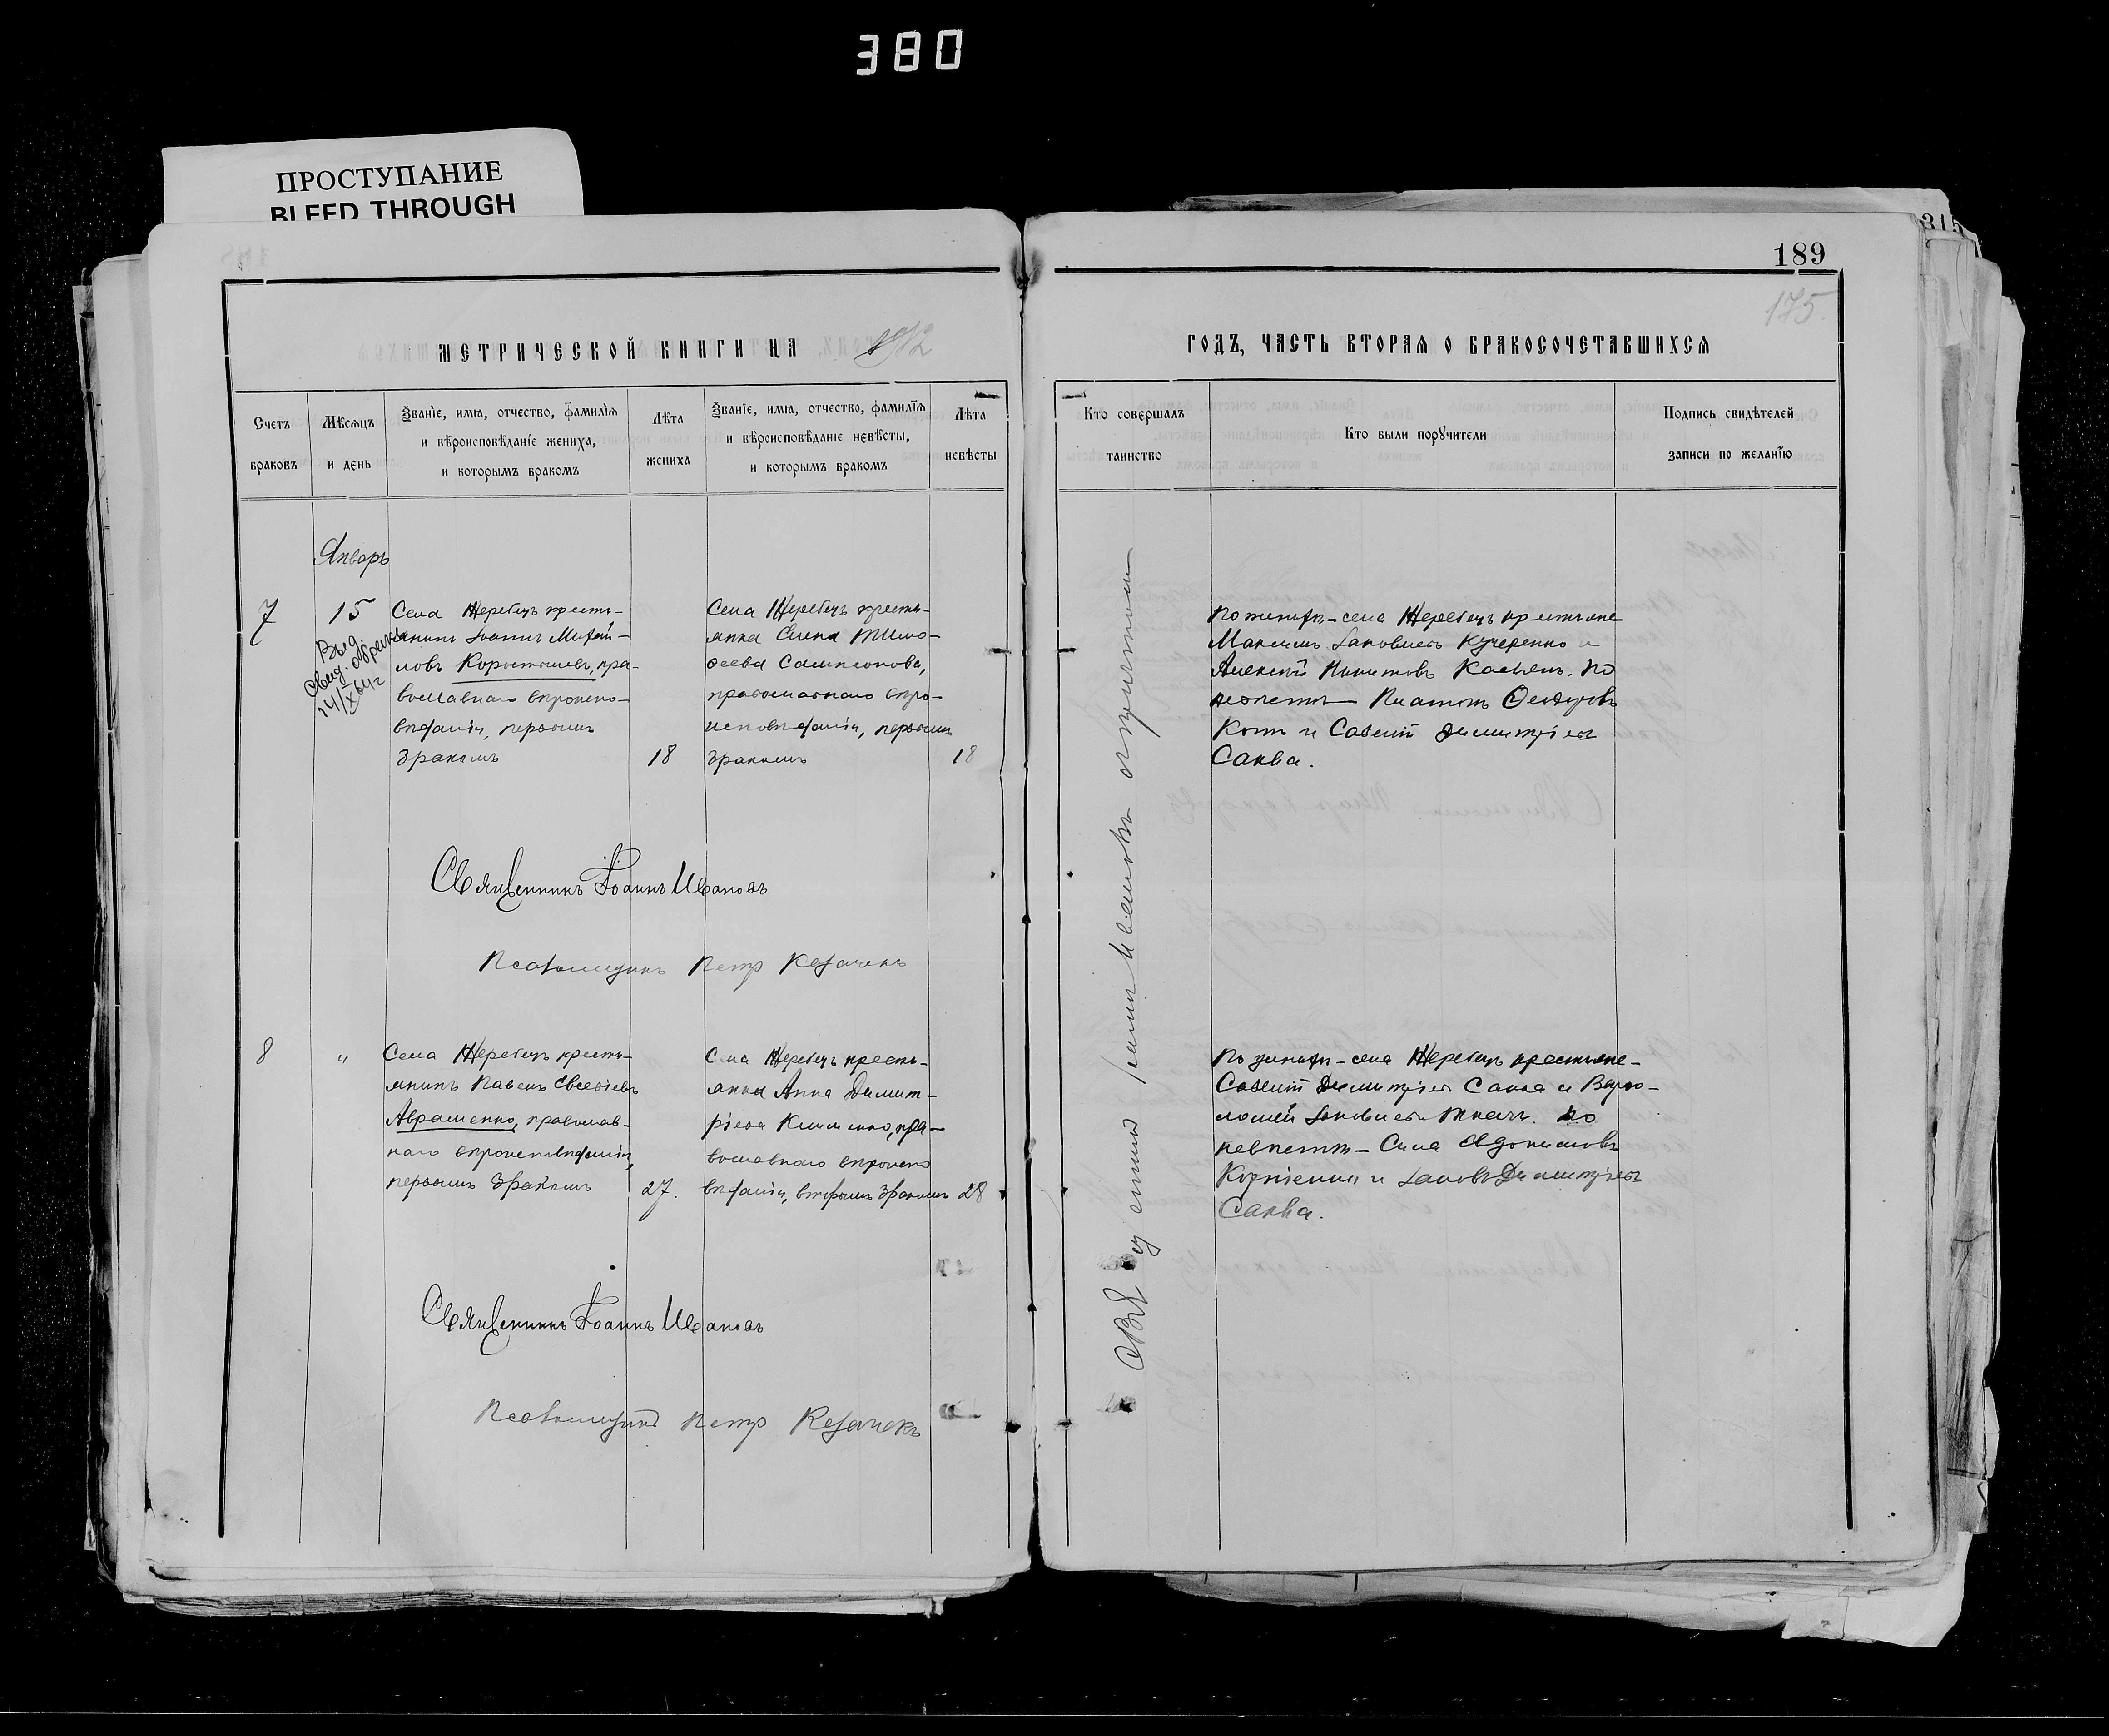 380
ПРОСТУПАНИЕ
BLEED THROUGH
315
189
175.
МЕТРИЧЕСКОЙ КНИГИ НА 1912
ГОДЪ, ЧАСТЬ ВТОРАЯ О БРАКОСОЧЕТАВШИХСЯ
Счетъ браковъ
Мѣсяцъ и день
Званіе, имя, отчество, фамилія
и вѣроисповѣданіе жениха,
и которымъ бракомъ
Лѣта жениха
Званіе, имя, отчество, фамилія
и вѣроисповѣданіе невѣсты,
и которымъ бракомъ
Лѣта невѣсты
Кто совершалъ таинство
Кто были поручители
Подпись свидѣтелей
записи по желанію
Январь
7
15
Выд.
свид. о браке
24/X 64 г
Села Жеребецъ кресть-
янинъ Іоаннъ Михай-
ловъ Коростышев, пра-
вославнаго вѣроиспо-
вѣданія, первымъ
бракомъ
18
Села Жеребецъ кресть-
янка Елена Тимо-
феева Сампсонова,
православнаго вѣро-
исповѣданія, первымъ
бракомъ
18
По женихѣ - села Жеребецъ крестьяне
Максимъ Іаковлевъ Кучеренко и
Алексій Никитовъ Касьян. По
невѣстѣ - Платонъ Феодоровъ
Котъ и Савелій Димитріевъ
Саква.
Священникъ Іоаннъ Ивановъ
Псаломщикъ Петр Козачекъ
8
"
Села Жеребецъ кресть-
янинъ Павелъ Евсевіевъ
Авраменко, православ-
наго вѣроисповѣданія,
первымъ бракомъ
27.
Села Жеребецъ кресть-
янка Анна Димит-
ріева Клименко, пра-
вославнаго вѣроиспо
вѣданія, вторымъ бракомъ
28
По женихѣ - села Жеребецъ крестьяне -
Савелій Димитріев Саква и Варфо-
ломей Іаковлевъ Ткачъ. По
невѣстѣ - Сила Евдокимовъ
Корніенко и Іаковъ Димитріевъ
Саква.
Священникъ Іоаннъ Ивановъ
Псаломщикъ Петр Козачекъ
Священникъ Іоаннъ Ивановъ